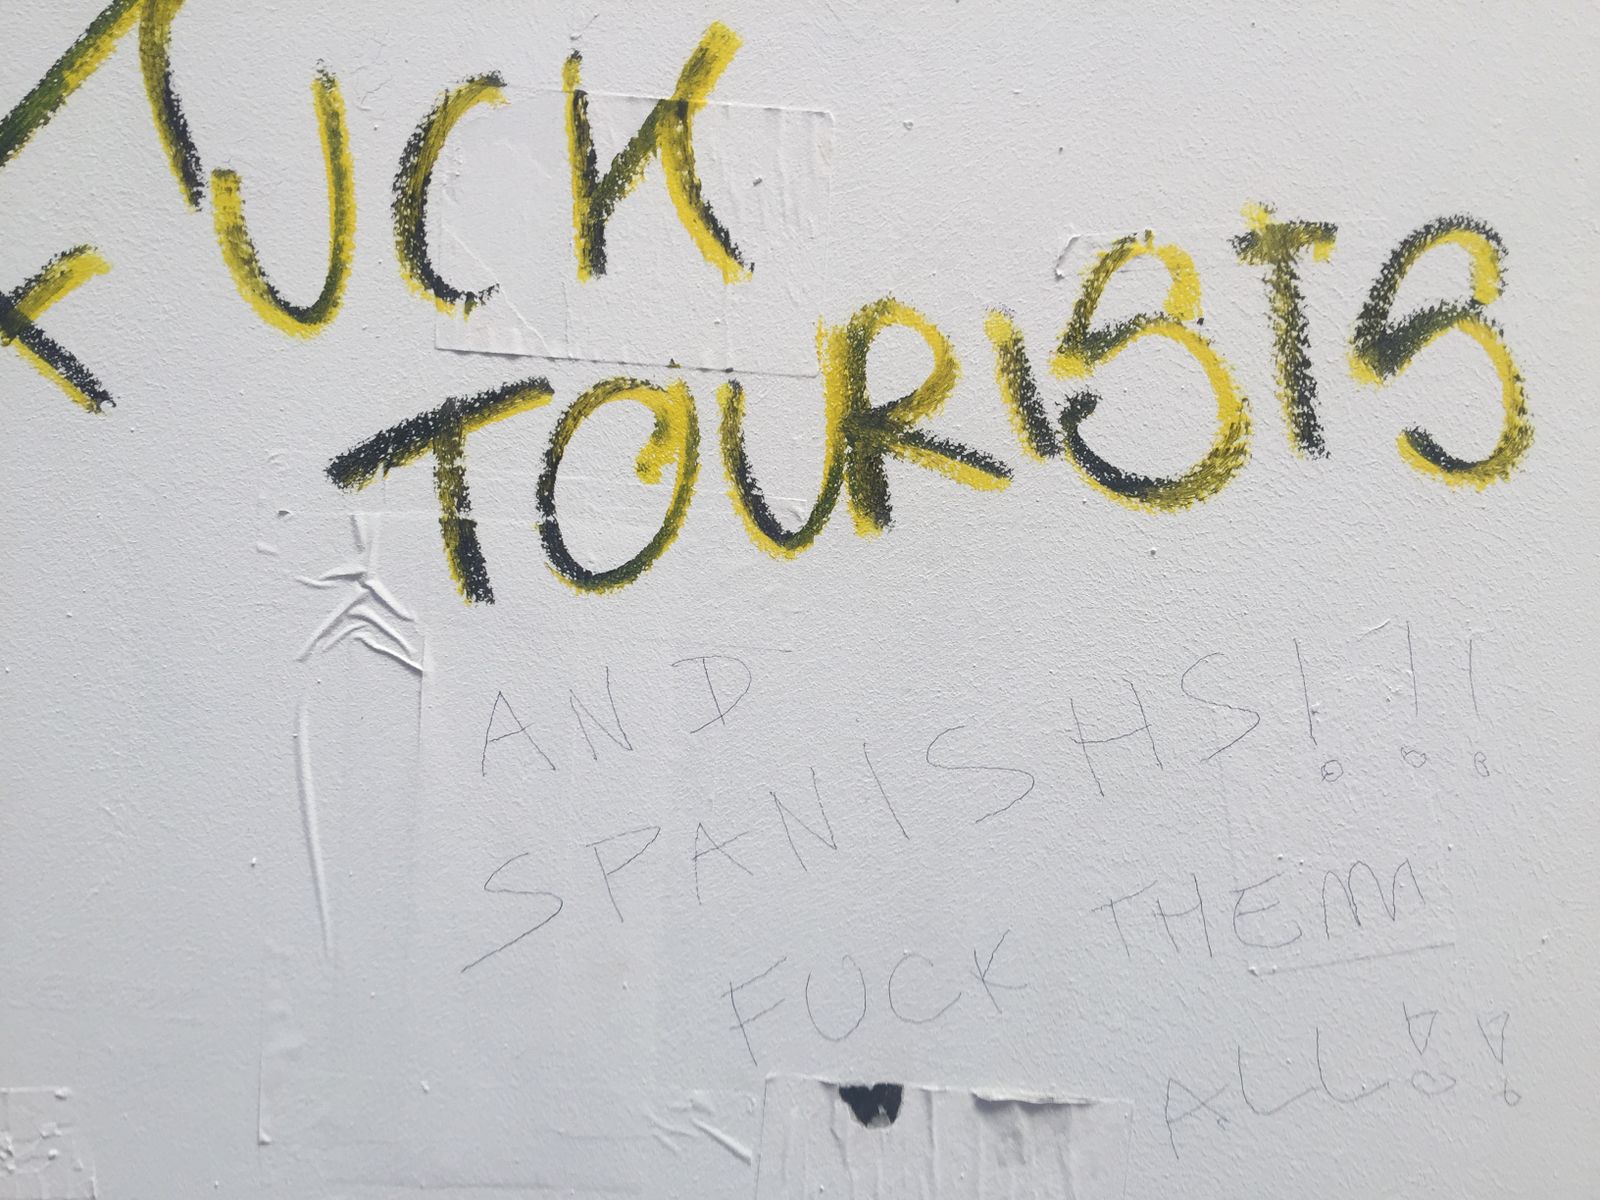 FUCK
TOURISTS
AND
SPANISHS!!!
FUCK THEM
ALL!!